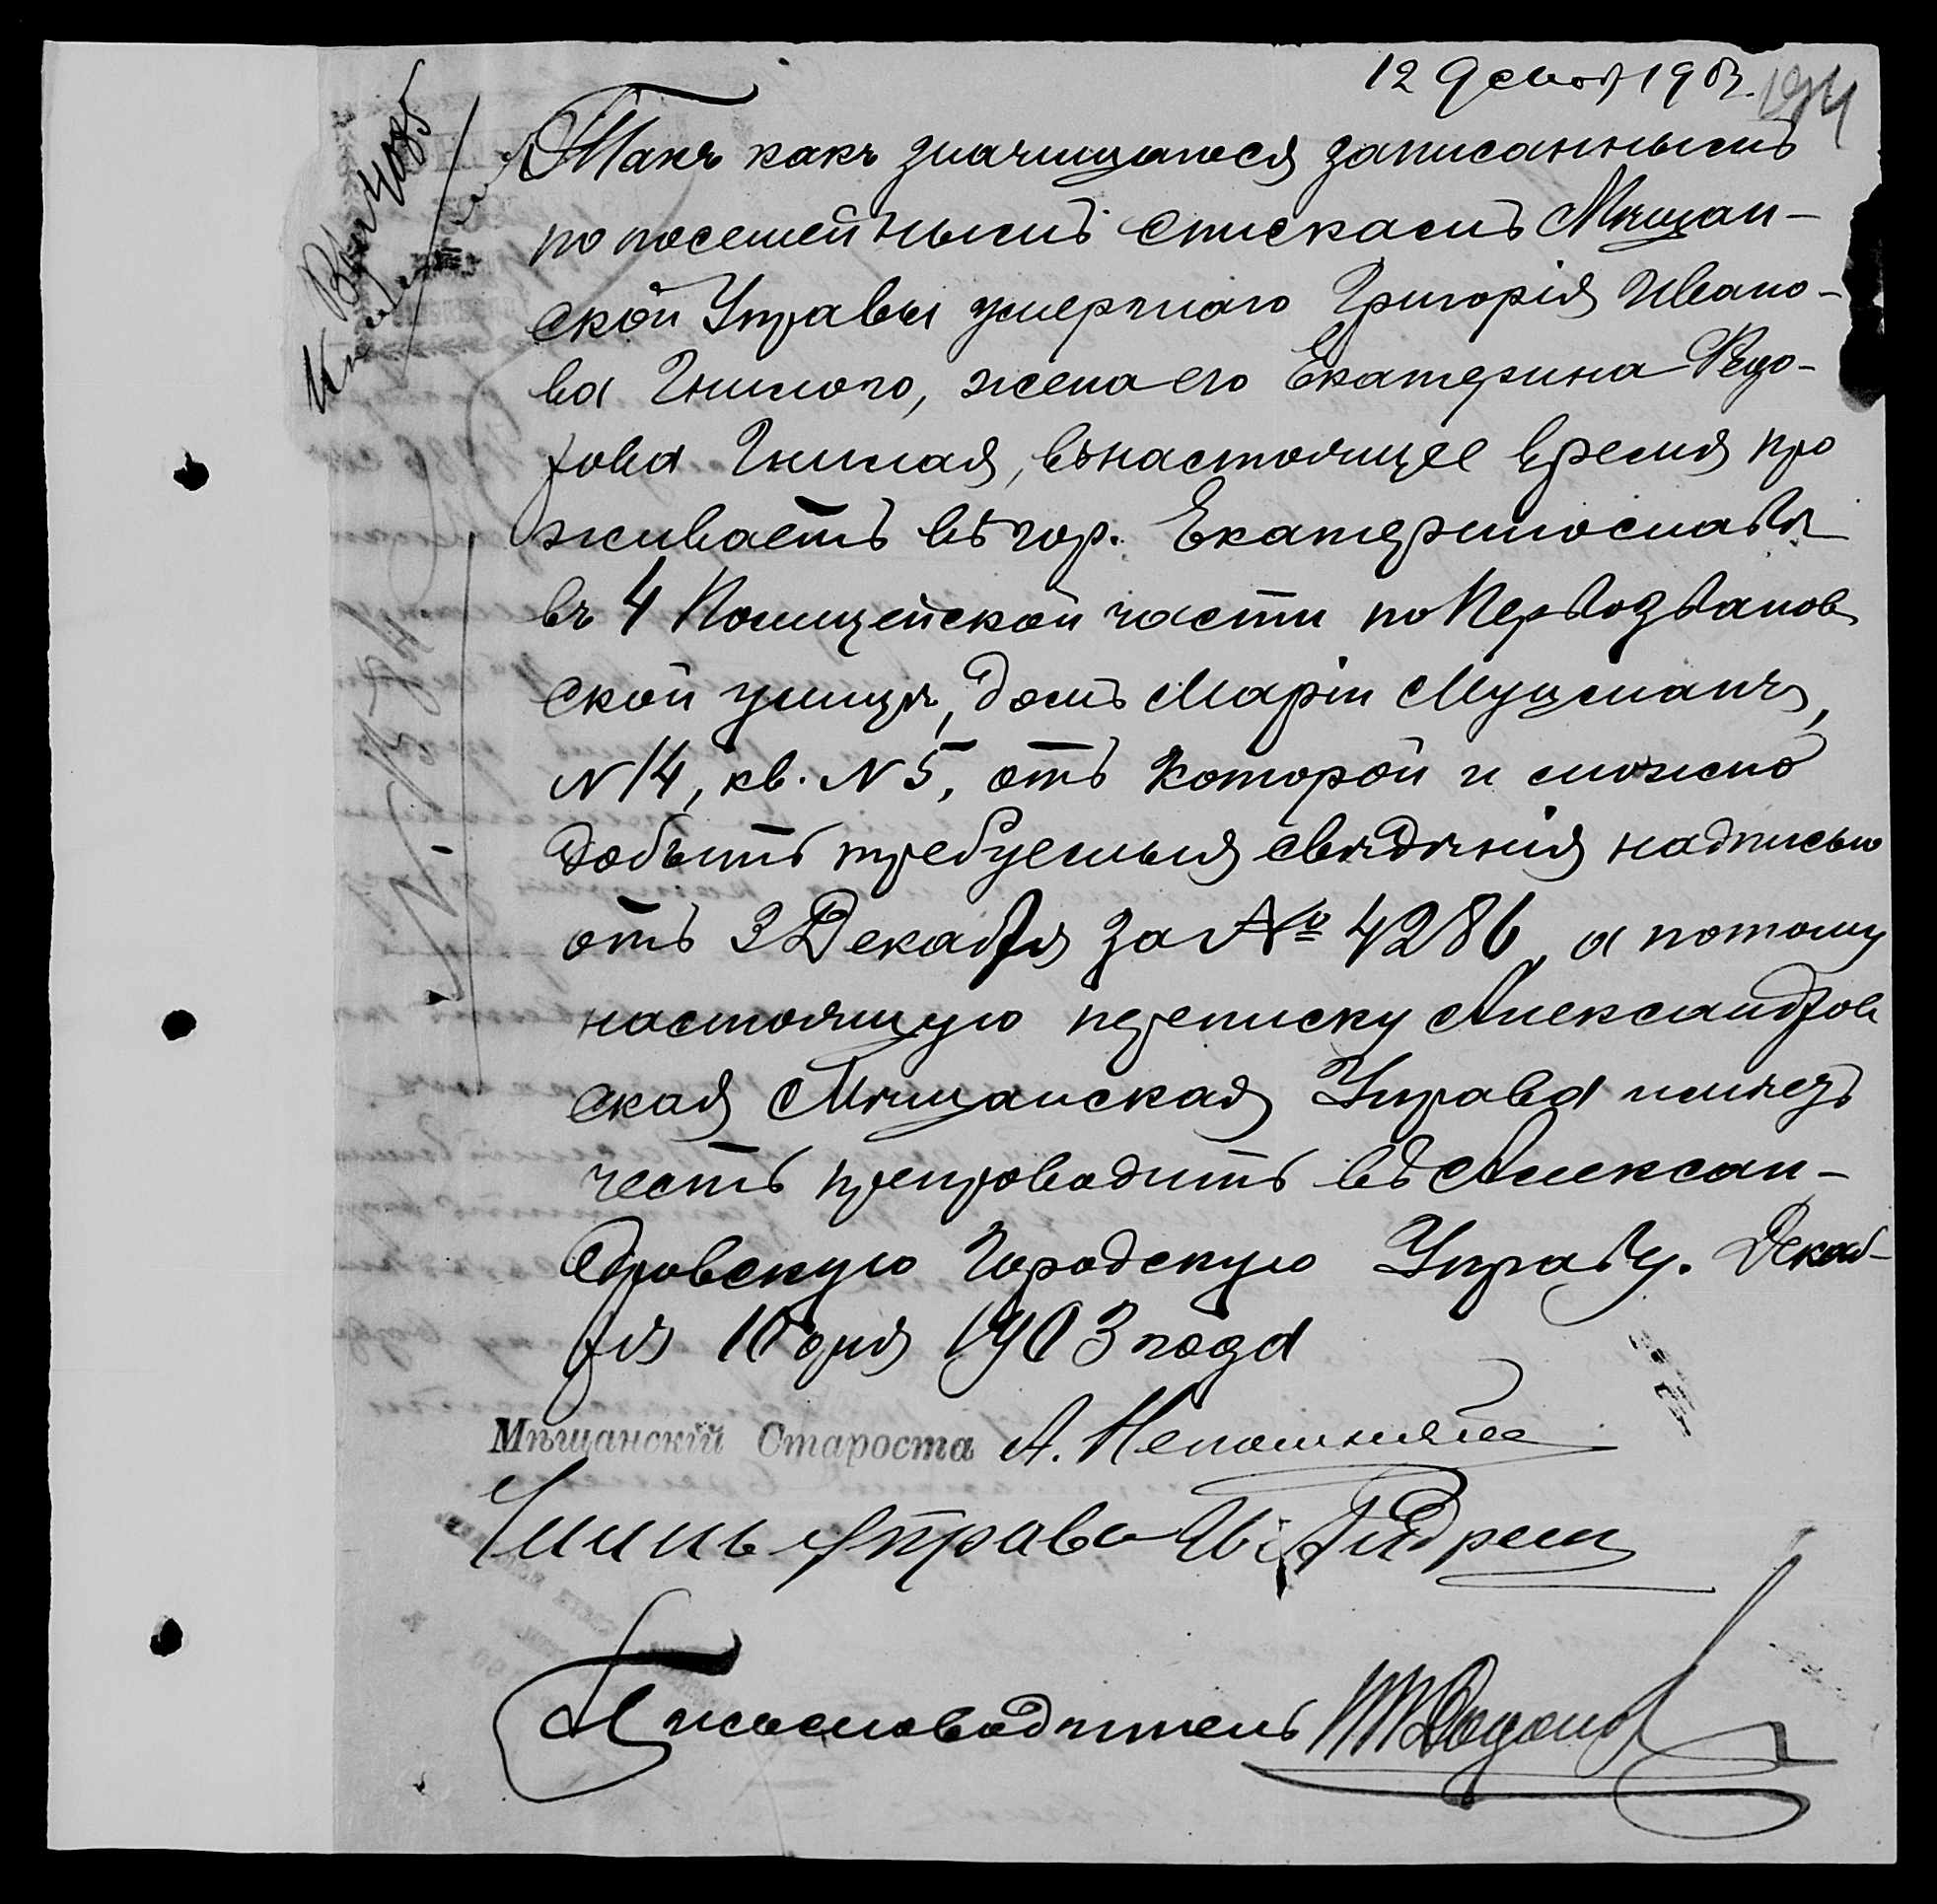 12 Декаб 1903.
194
Такъ какъ значущагося записаннымъ
по посемейнымъ спискамъ Мѣщан-
ской Управы умершаго Григорія Ивано-
ва Гнилого, жена его Екатерина Федо-
рова Гнилая, въ настоящее время про
живаетъ въ гор. Екатеринославѣ
въ 4 Полицейской части по Первозванов
ской улицѣ, домъ Маріи Муцманъ,
N 14, кв. N 5, отъ которой и можно
добыть требуемыя свѣдѣнія надписью
отъ 3 Декабря за № 4286, а потому
настоящую переписку Александров
ская Мѣщанская Управа имѣетъ
честь препроводить въ Алексан-
дровскую Городскую Управу. Декаб-
ря 10 дня 1903 года
Мѣщанскій Староста А. Непомнящій
Членъ Управы
Письмоводитель